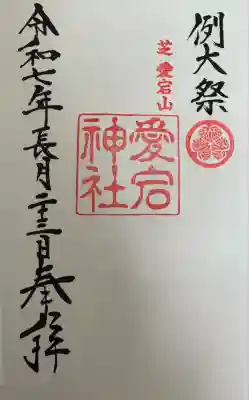 例大祭
芝愛宕山
愛宕
神社
令和七年長月二十三日奉拝